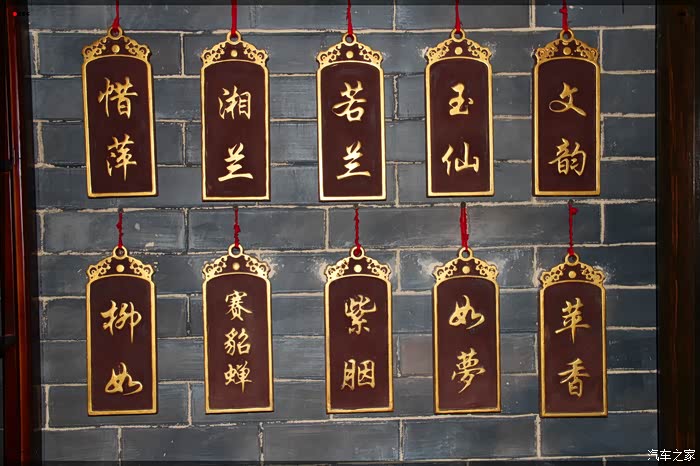 惜萍
湘兰
若兰
玉仙
文韵
柳如
赛貂蝉
紫胭
如夢
苹香
汽车之家